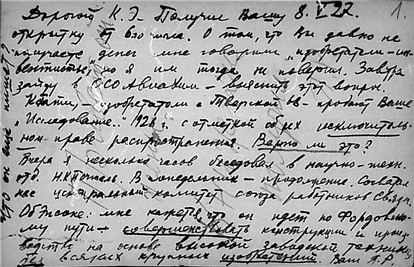 Дорогой К.Э. Получил Вашу 8.V.27. 1.
открытку от 6го числа. О том, что Вы давно не
получаете денег мне говорили „изобретатели-ин-
но я им тогда не поверил. Завтра
зайду в ОСОАвиахим – выяснить этот вопрос.
Кстати, изобретатели с Тверской 68 – продают Ваше
"Исследование..." 1926 г. с отметкой об их исключитель-
ном праве распространения. Верно ли это?
Вчера я несколько часов беседовал в научно-техн.
отд. В понедельник – продолжение.
нас центральный комитет союза работников связи.
Об Эсноне: мне кажется, что он идет по Фордовско-
му пути – совершенствовать конструкции и произ-
водства на основе высокой заводской техники,
без всяких крупных изобретений. Ваш А.Р.
Что он еще пишет?